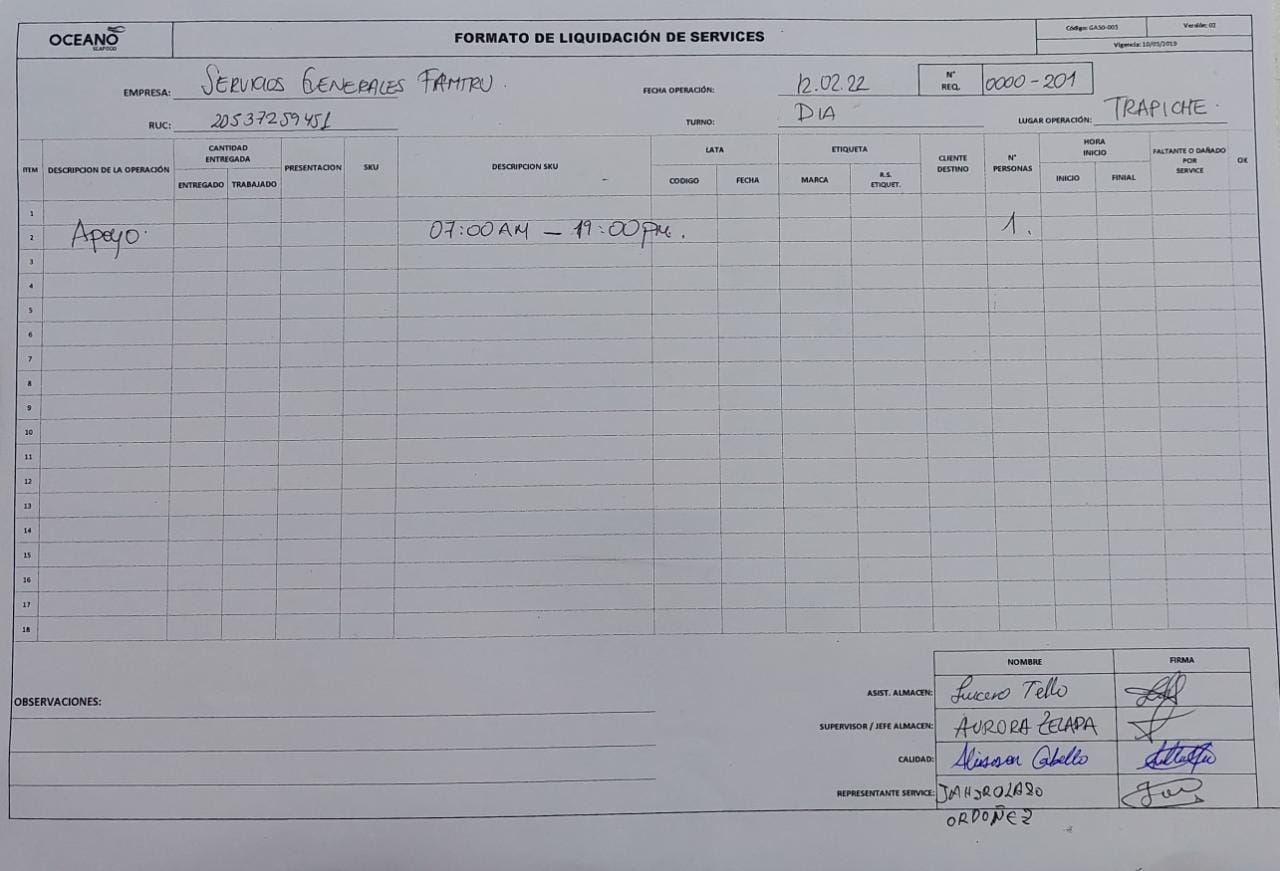 OCEANO
SEAFOOD
FORMATO DE LIQUIDACIÓN DE SERVICES
Código: GASO-005
Versión: 02
Vigencia: 10/05/2019
EMPRESA: SERVICIOS GENERALES FAMTRU.
FECHA OPERACIÓN: 12.02.22
N° REQ. 0000-201
RUC: 20537259451
TURNO: DIA
LUGAR OPERACIÓN: TRAPICHE.
ITEM
DESCRIPCION DE LA OPERACIÓN
CANTIDAD ENTREGADA
ENTREGADO
TRABAJADO
PRESENTACION
SKU
DESCRIPCION SKU
LATA
CODIGO
FECHA
ETIQUETA
MARCA
R.S. ETIQUET.
CLIENTE DESTINO
N° PERSONAS
HORA INICIO
INICIO
FINIAL
FALTANTE O DAÑADO POR SERVICE
OK
1
2 Apoyo. 07:00AM - 19:00pm. 1.
3
4
5
6
7
8
9
10
11
12
13
14
15
16
17
18
OBSERVACIONES:
NOMBRE
FIRMA
ASIST. ALMACEN: Lucero Tello
SUPERVISOR / JEFE ALMACEN: AURORA ZELADA
CALIDAD: Cabello
REPRESENTANTE SERVICE:
ORDOÑEZ